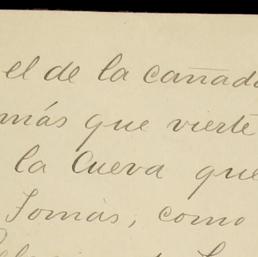 el de la cañada
más que vierte
la Cueva que
Tomás, como